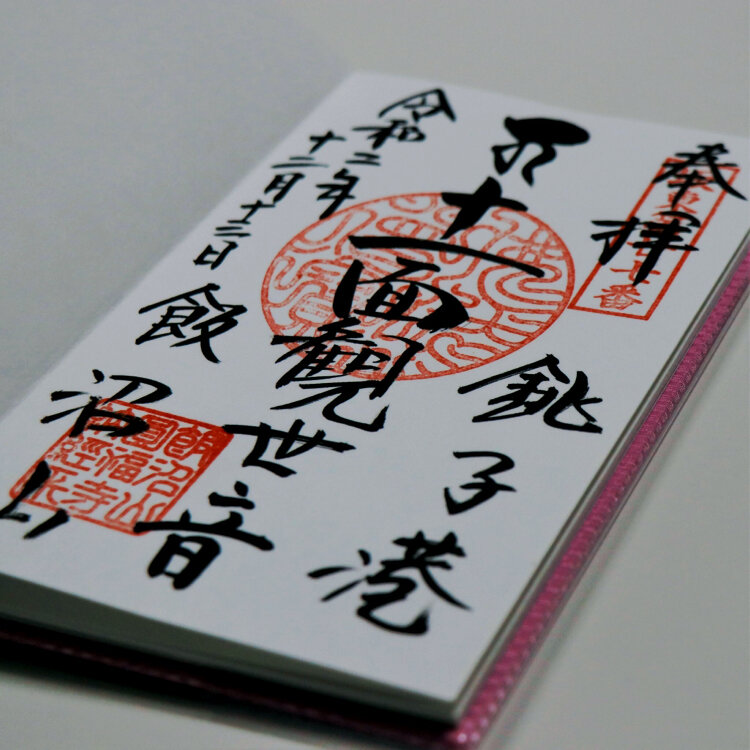 奉拝
坂東第二十七番
銚子港
十一面觀世音
飯沼山
令和二年
十二月十三日
飯沼山
圓福寺